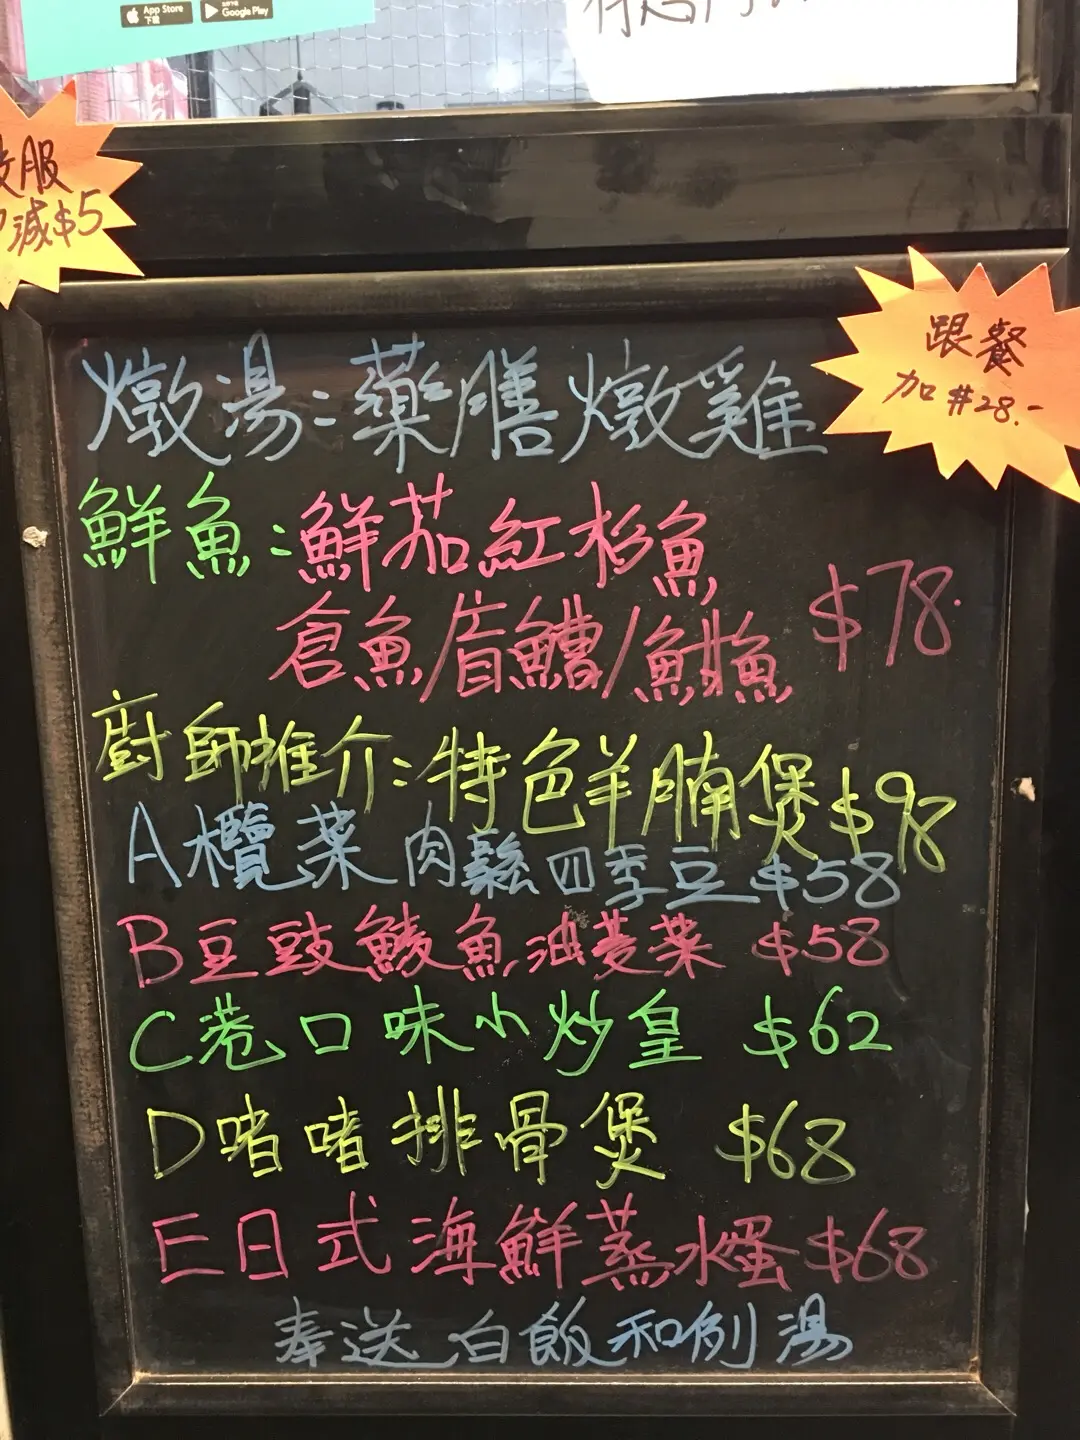 App Store
下載
Google Play
服
減$5
跟餐
加#28.-
燉湯:藥膳燉雞
鮮魚:鮮茄紅杉魚
倉魚/盲鰽/魽魚 $78.
廚師推介:特色羊腩煲$98
A欖菜肉鬆四季豆$58
B豆豉鯪魚油麦菜 $58
C巷口味小炒皇 $62
D啫啫排骨煲 $68
E日式海鮮蒸水蛋$68
奉送白飯和例湯